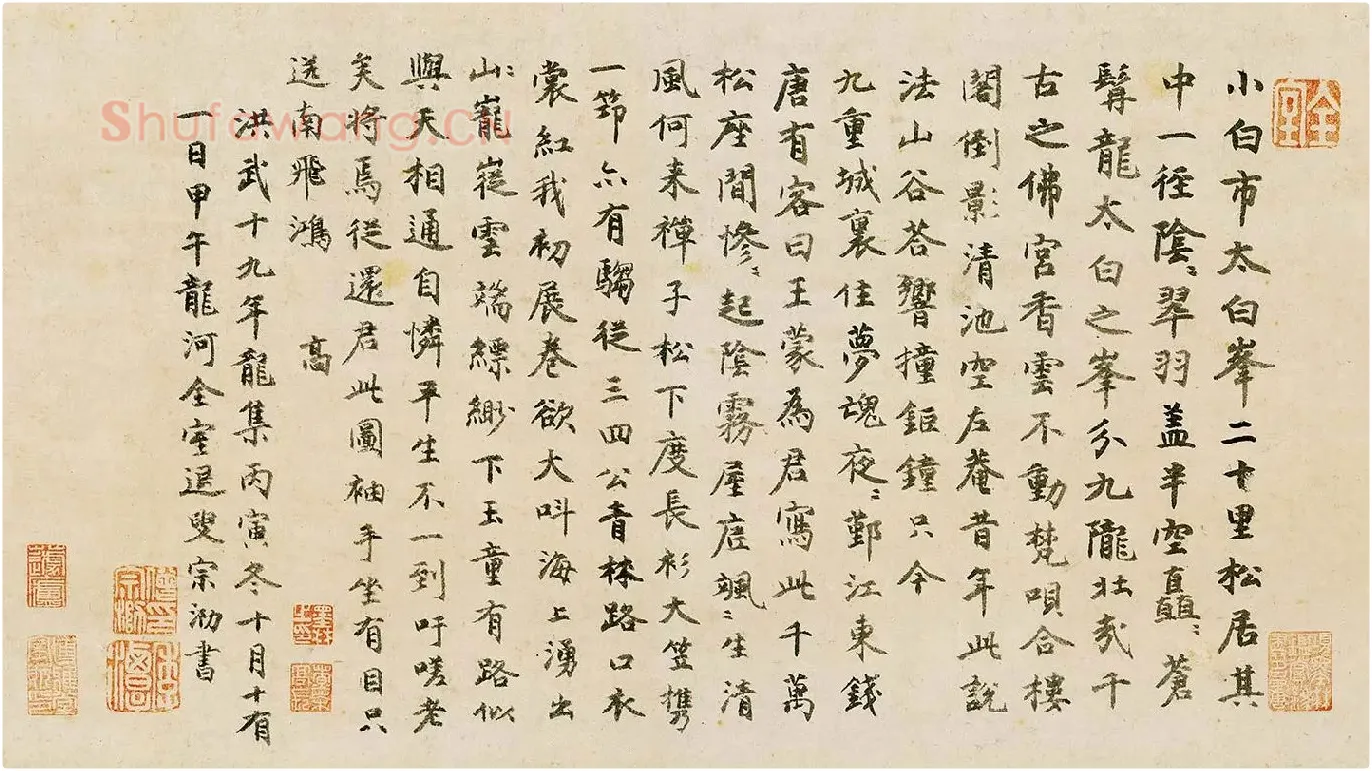 小白市太白峯二十里松居其
中一徑陰〻翠羽盖半空矗〻蒼
髯龍太白之峯分九隴壯哉千
古之佛宮香雲不動梵唄合樓
閣倒影清池空左菴昔年此說
法山谷荅響撞鉅鐘只今
九重城裏住夢魂夜〻鄞江東錢
唐有客曰王蒙為君寫此千萬
松座間慘〻起陰霧屋底颯〻生清
風何来禪子松下度長衫大笠携
一笻亦有騶從三四公青林路口衣
裳紅我初展卷欲大呌海上湧出
山〻巃嵸雲端縹緲下玉童有路似
與天相通自憐平生不一到吁嗟老
矣將焉從還君此圖袖手坐有目只
送南飛鴻
高
洪武十九年龍集丙寅冬十月十有
一日甲午龍河全室退叟宗泐書
全室
Shufawang.cn